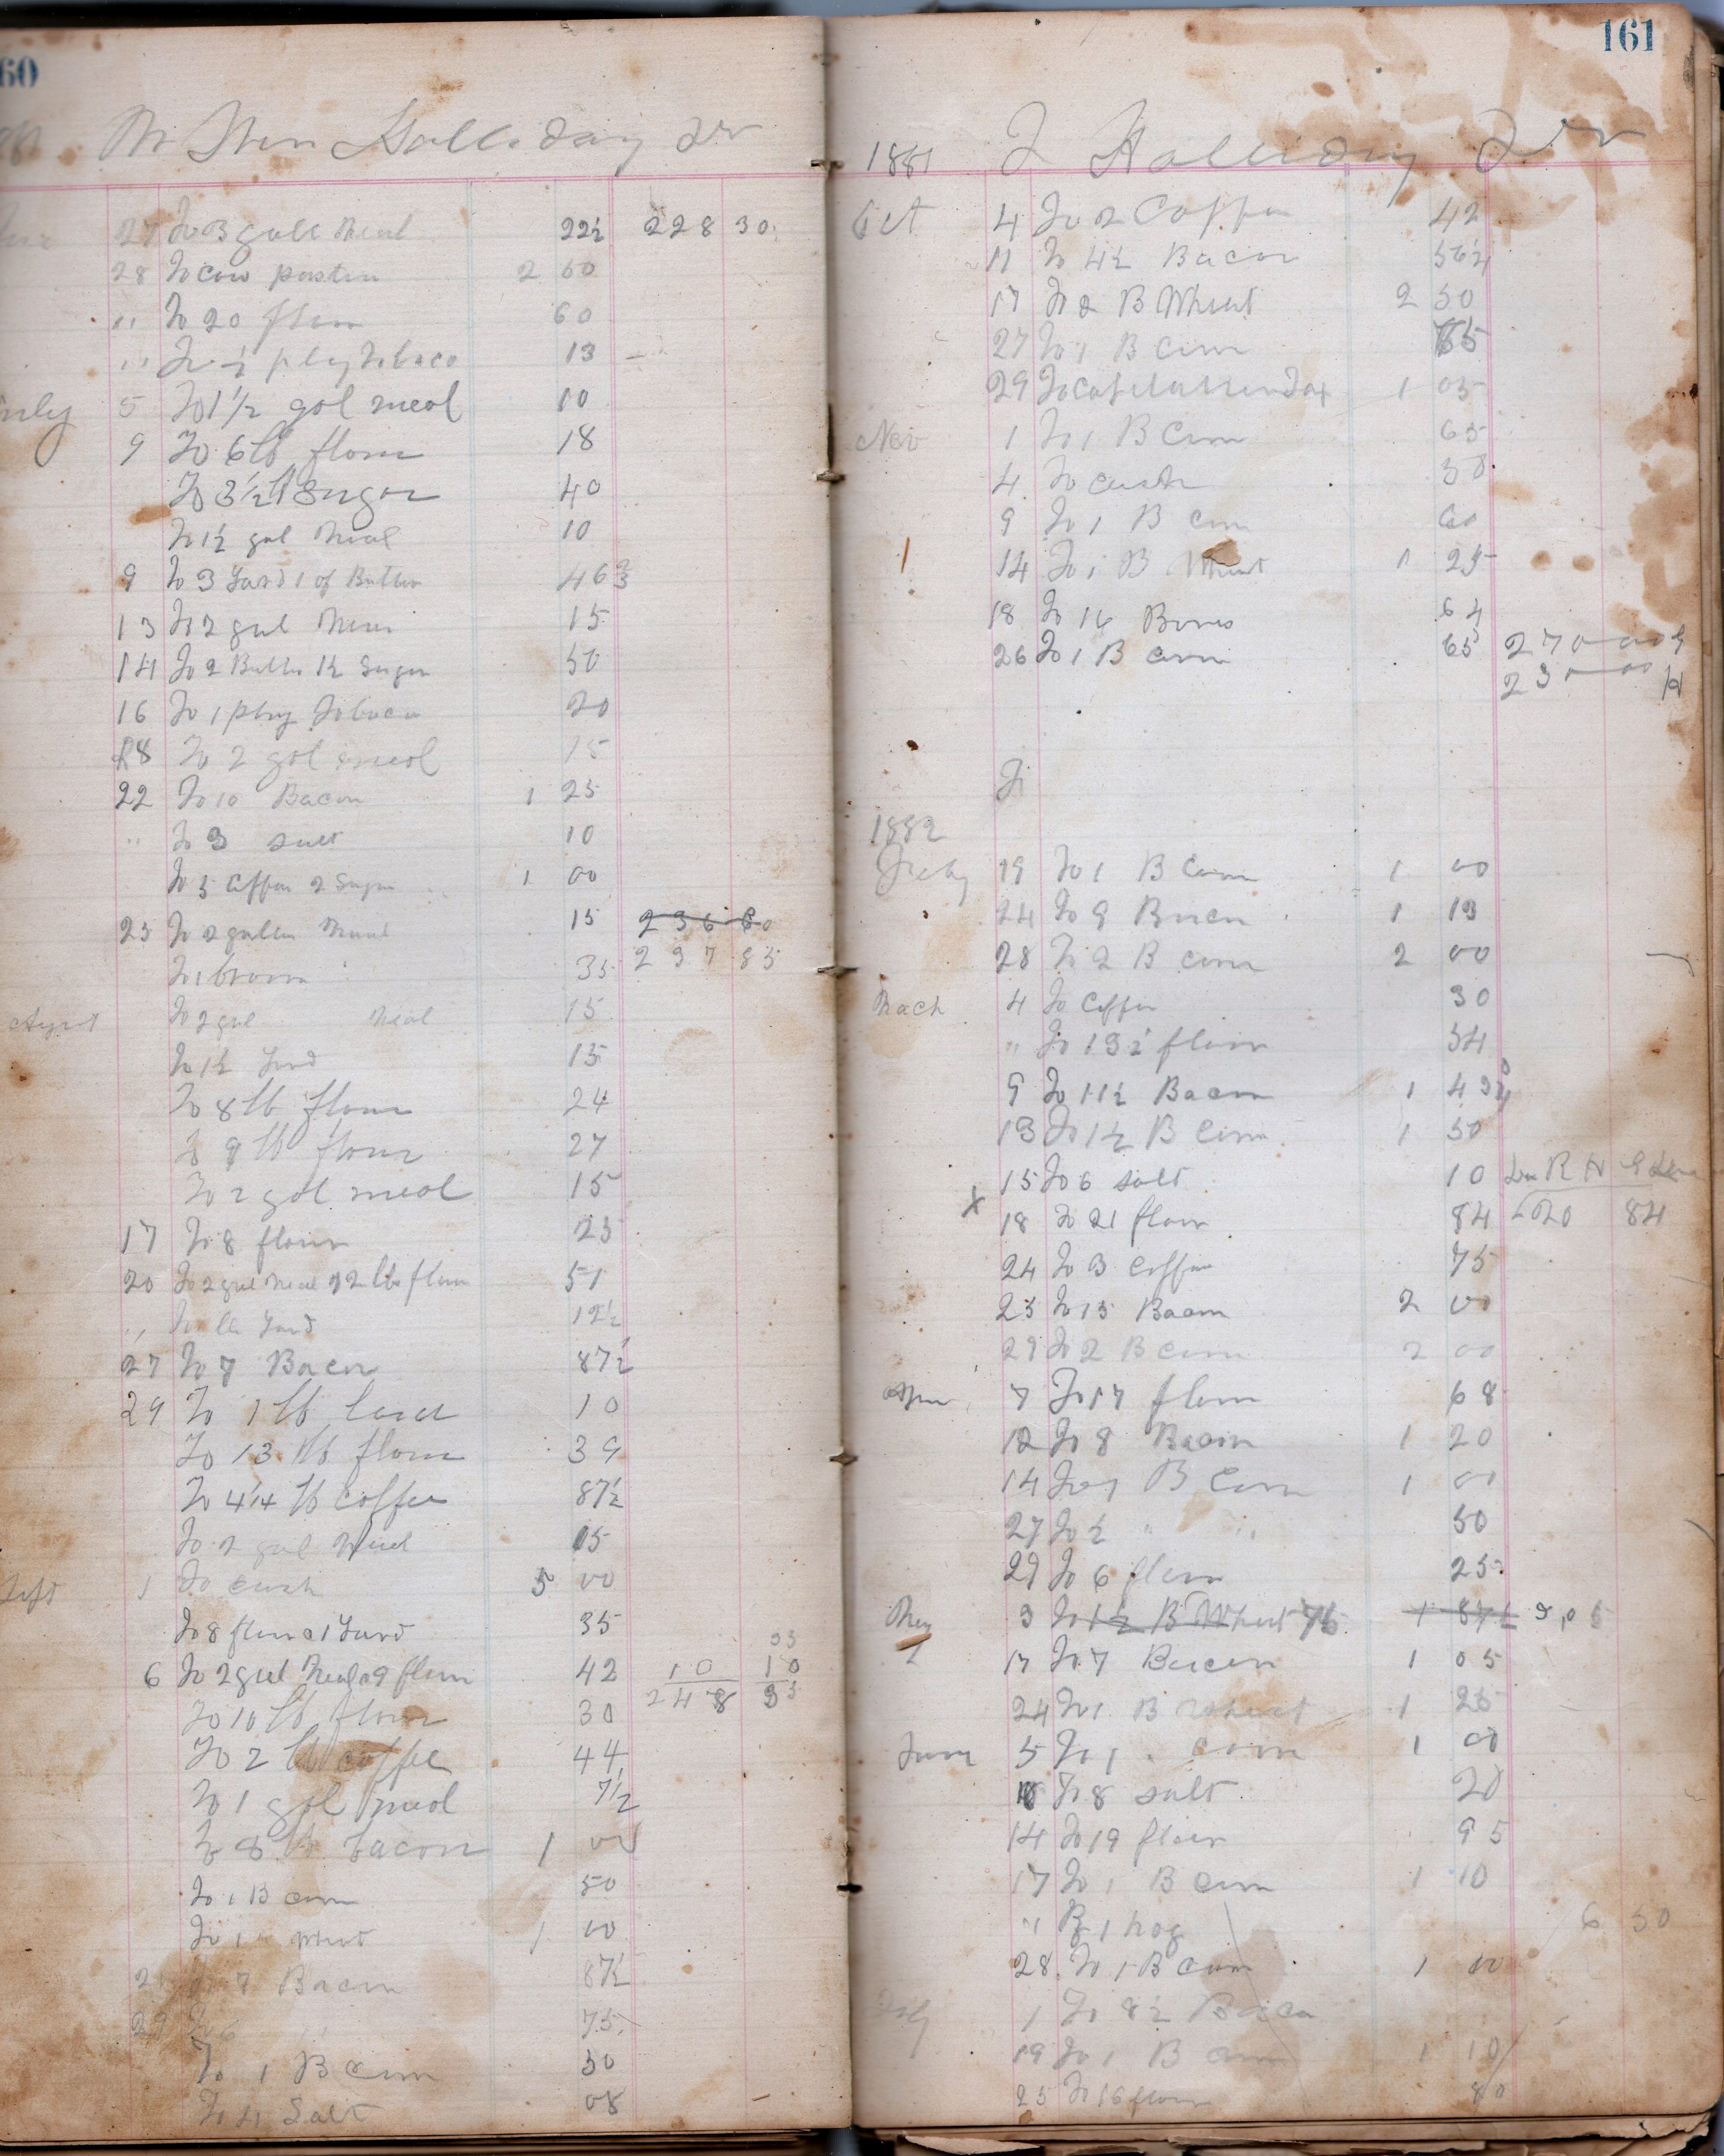 60
Halliday Dr
27 To 3 galls Meal 22½ 228 30
28 To cow pasture 2 50
" To 20 flour 60
" To ½ plug Tobaco 13
July 5 To 1½ gol meol 10
9 To 6 lb flour 18
To 3½ lb Sugar 40
To 1½ gal Meal 10
9 To 3 Lard 1 of Butter 46⅔
13 To 2 gal Meal 15
14 To 2 Butter 1½ Sugar 50
16 To 1 plug Tobaco 20
18 To 2 gol meol 15
22 To 10 Bacon 1 25
" To 3 salt 10
To 5 Coffee 2 Sugar 1 00
25 To 2 gallon Meal 15 236 80
To 1 broom 35 237 85
August To 2 gal Meal 15
To 1½ Lard 15
To 8 lb flour 24
To 9 lb flour 27
To 2 gol meol 15
17 To 8 flour 25
20 To 2 gal Meal 12 lbs flour 51
" To lb Lard 12½
27 To 7 Bacon 87½
29 To 1 lb lard 10
To 13 lb flour 39
To 4¼ lb Coffee 87½
To 2 gal Meal 15
1 To cash 5 00
To 8 flour 1 Lard 35
6 To 2 gal Meal 9 flour 42 10 10
To 10 lb flour 30 248 35
To 2 lb coffe 44
To 1 gol meol 7½
To 8 lb bacon 1 00
To 1 B corn 50
To 1 " Wheat 1 00
To 7 Bacon 87½
29 To 6 " 75
To 1 B corn 50
To 4 Salt 08
161
1881 J Halliday Dr
Oct 4 To 2 Coffee 42
11 To 4½ Bacon 56¼
17 To 2 B Wheat 2 50
27 To 1 B corn 65
29 To cash 1 05
Nov 1 To 1 B corn 65
4 To cash 50
9 To 1 B corn 60
14 To 1 B Wheat 1 25
18 To 16 Bones 64
26 To 1 B corn 65 270
To
1882
Feby 19 To 1 B corn 1 00
24 To 9 Bacon 1 13
28 To 2 B corn 2 00
Mach 4 To Coffee 30
" To 13½ flour 54
9 To 11½ Bacon 1 43¾
13 To 1½ B corn 1 50
15 To 6 salt 10
x 18 To 21 flour 84 20 84
24 To 3 Coffee 75
25 To 15 Bacon 2 00
29 To 2 B corn 2 00
7 To 17 flour 68
12 To 8 Bacon 1 20
14 To 1 B corn 1 00
27 To ½ " " 50
29 To 6 flour 25
May 3 To 1½ B Wheat 75 1 87½
17 To 7 Bacon 1 05
24 To 1 B Wheat 1 25
June 5 To 1 " corn 1 00
To 8 salt 20
14 To 19 flour 95
17 To 1 B corn 1 10
" By 1 hog 6 50
28 To 1 B corn 1 00
July 1 To 8½ Bacon
19 To 1 B corn 1 10
25 To 16 flour 80